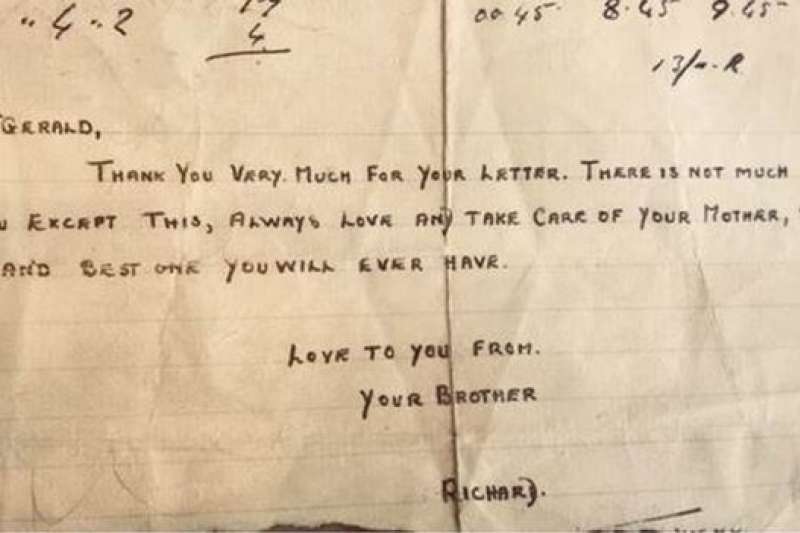 " 4 " 2
4
00.45 8.45 9.45
13/
GERALD,
THANK YOU VERY. MUCH FOR YOUR LETTER. THERE IS NOT MUCH
EXCEPT THIS, ALWAYS LOVE AND TAKE CARE OF YOUR MOTHER,
AND BEST ONE YOU WILL EVER HAVE.
LOVE TO YOU FROM.
YOUR BROTHER
RICHARD.